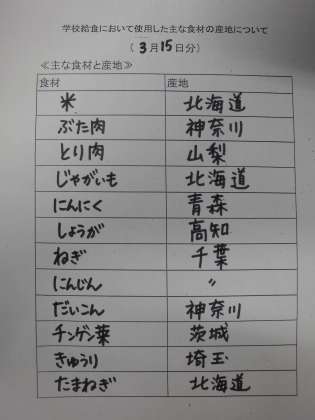 学校給食において使用した主な食材の産地について
(3月15日分)
≪主な食材と産地≫
食材 産地
米 北海道
ぶた肉 神奈川
とり肉 山梨
じゃがいも 北海道
にんにく 青森
しょうが 高知
ねぎ 千葉
にんじん 〃
だいこん 神奈川
チンゲン葉 茨城
きゅうり 埼玉
たまねぎ 北海道